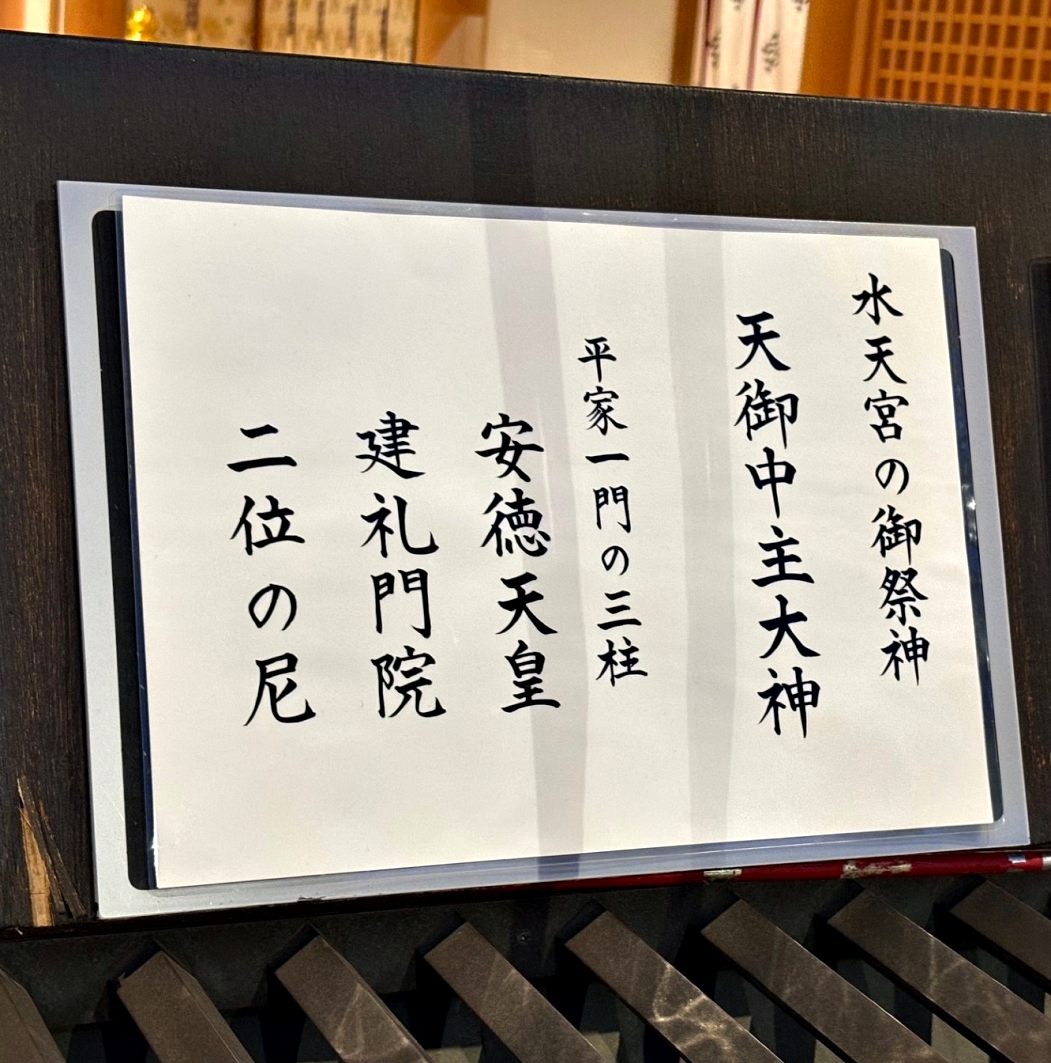 水天宮の御祭神
天御中主大神
平家一門の三柱
安徳天皇
建礼門院
二位の尼